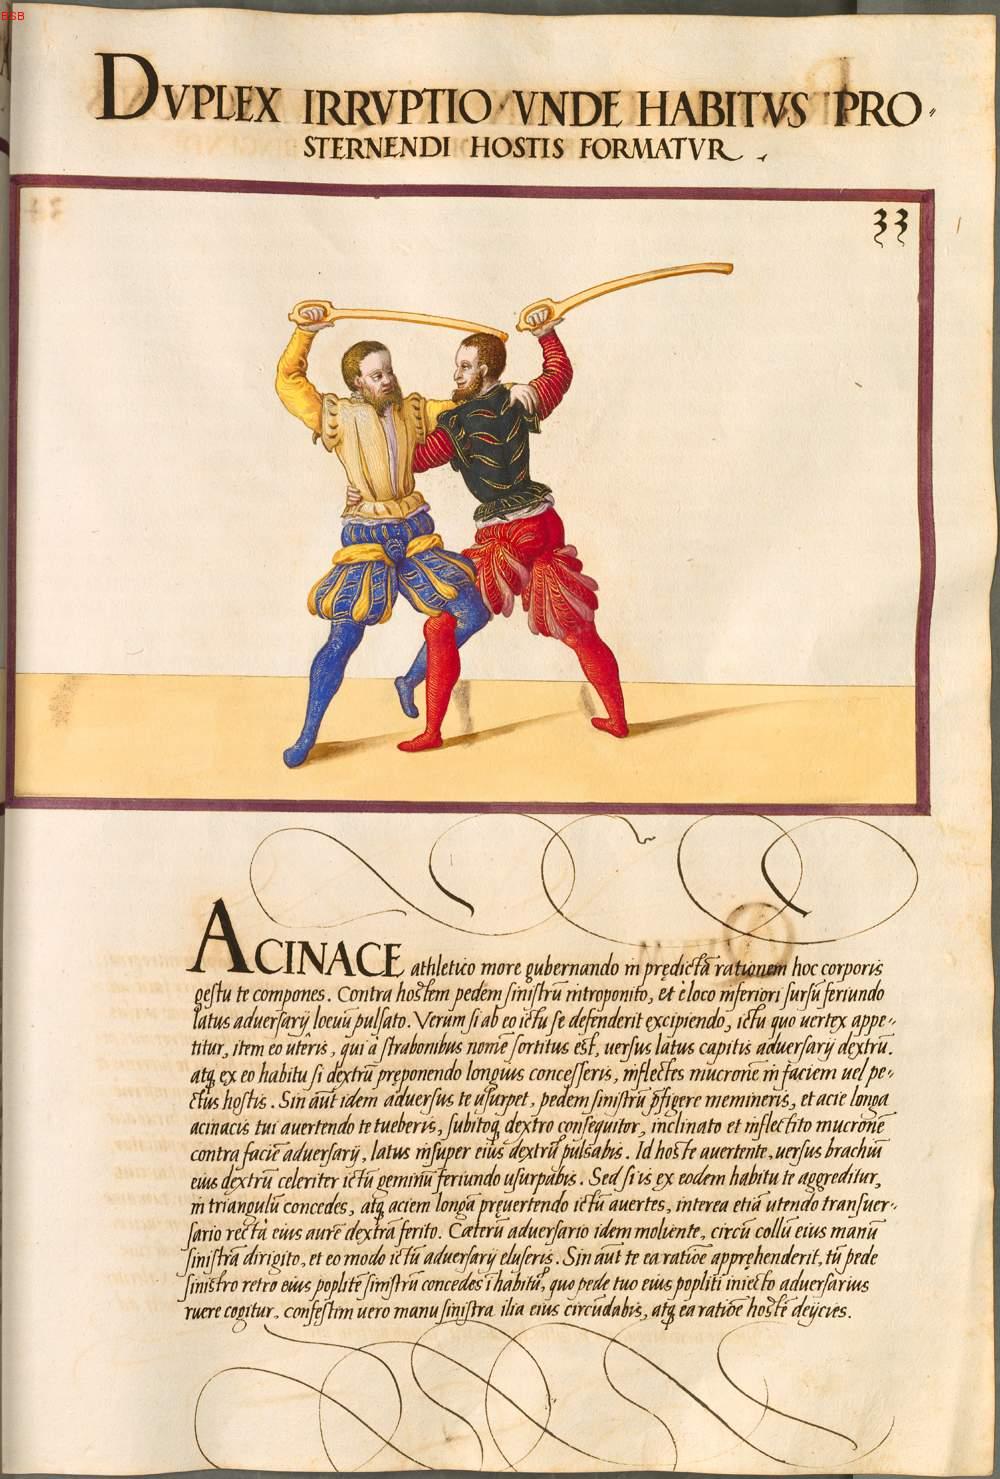 BSB
DVPLEX IRRVPTIO VNDE HABITVS PRO⸗
STERNENDI HOSTIS FORMATVR.
33
ACINACE athletico more gubernando in prędictā rationem hoc corporis
gestu te compones. Contra hostem pedem sinistrū introponito, et è loco inferiori sursū feriundo
latus adversarij loeuū pulsato. Verum si ab eo ictu se defenderit excipiendo, ictu quo uertex appe⸗
titur, item eo utêris, qui à strabonibus nomē sortitus est, uersus latus capitis adversarij dextrū.
atq; ex eo habitu si dextrū pręponendo longius concesseris, inflectes mucronē in faciem uel pe⸗
ctus hostis. Sin aūt idem adversus te usurpet, pedem sinistrū p̄figere memineris, et acie longa
acinacis tui auertendo te tueberis, subitoq; dextro consequitor, inclinato et inflectito mucronē
contra faciē adversarij, latus insuper eius dextrū pulsabis. Id hoste auertente, uersus brachiū
eius dextrū celeriter ictū geminū feriundo usurpabis. Sed si is ex eodem habitu te aggreditur,
in triangulū concedes, atq; aciem longā pręuertendo ictū auertes, interea etiā utendo transuer⸗
sario recta eius aurē dextrā ferito. Cæterū adversario idem moliente, circū collū eius manū
sinistrā dirigito, et eo modo ictū adversarij eluseris. Sin aūt te ea ratiōe appręhenderit, tū pede
sinistro retro eius poplitē sinistrū concedes ī habitū, quo pede tuo eius popliti iniecto adversarius
ruere cogitur, confestim uero manu sinistra ilia eius circūdabis, atq; ea ratiōe hostē deijcies.